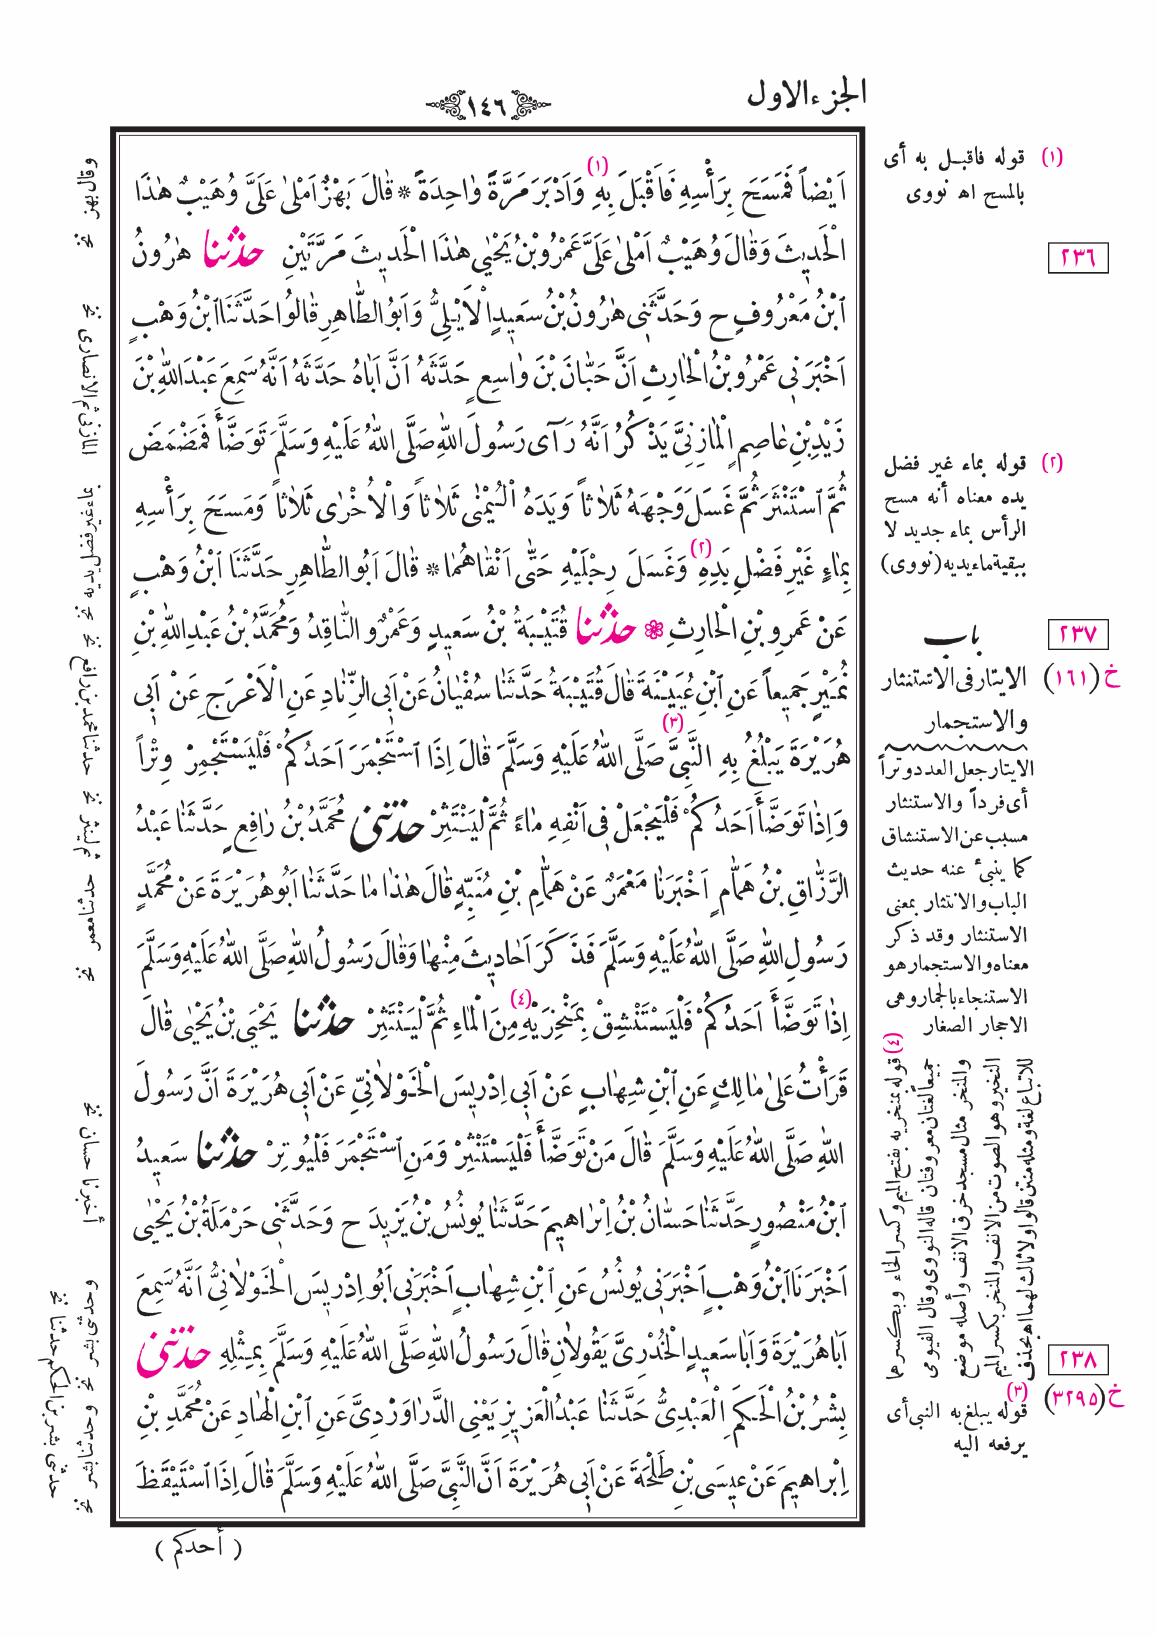 الجزء الاول
١٤٦
اَيْضاً فَمَسَحَ بِرَأْسِهِ فَاَقْبَلَ بِهِ (١) وَاَدْبَرَ مَرَّةً وَاحِدَةً * قَالَ بَهْزٌ اَمْلٰى عَلَىَّ وُهَيْبٌ هٰذَا
الْحَدِيثَ وَقَالَ وُهَيْبٌ اَمْلٰى عَلَىَّ عَمْرُو بْنُ يَحْيٰى هٰذَا الْحَدِيثَ مَرَّتَيْنِ حدثنا هٰرُونُ
ابْنُ مَعْرُوفٍ ح وَحَدَّثَنِى هٰرُونُ بْنُ سَعِيدٍ الْاَيْلِىُّ وَاَبُو الطَّاهِرِ قَالُوا حَدَّثَنَا ابْنُ وَهْبٍ
اَخْبَرَنِى عَمْرُو بْنُ الْحَارِثِ اَنَّ حَبَّانَ بْنَ وَاسِعٍ حَدَّثَهُ اَنَّ اَبَاهُ حَدَّثَهُ اَنَّهُ سَمِعَ عَبْدَ اللّٰهِ بْنَ
زَيْدِ بْنِ عَاصِمٍ الْمَازِنِىَّ يَذْكُرُ اَنَّهُ رَآى رَسُولَ اللّٰهِ صَلَّى اللّٰهُ عَلَيْهِ وَسَلَّمَ تَوَضَّأَ فَمَضْمَضَ
ثُمَّ اسْتَنْثَرَ ثُمَّ غَسَلَ وَجْهَهُ ثَلَاثاً وَيَدَهُ الْيُمْنٰى ثَلَاثاً وَالْاُخْرٰى ثَلَاثاً وَمَسَحَ بِرَأْسِهِ
بِمَاءٍ غَيْرِ فَضْلِ يَدِهِ (٢) وَغَسَلَ رِجْلَيْهِ حَتّٰى اَنْقَاهُمَا * قَالَ اَبُو الطَّاهِرِ حَدَّثَنَا ابْنُ وَهْبٍ
عَنْ عَمْرِو بْنِ الْحَارِثِ حدثنا قُتَيْبَةُ بْنُ سَعِيدٍ وَعَمْرٌو النَّاقِدُ وَمُحَمَّدُ بْنُ عَبْدِ اللّٰهِ بْنِ
نُمَيْرٍ جَمِيعاً عَنِ ابْنِ عُيَيْنَةَ قَالَ قُتَيْبَةُ حَدَّثَنَا سُفْيَانُ عَنْ اَبِى الزِّنَادِ عَنِ الْاَعْرَجِ عَنْ اَبِى
هُرَيْرَةَ يَبْلُغُ بِهِ النَّبِىَّ (٣) صَلَّى اللّٰهُ عَلَيْهِ وَسَلَّمَ قَالَ اِذَا اسْتَجْمَرَ اَحَدُكُمْ فَلْيَسْتَجْمِرْ وِتْراً
وَاِذَا تَوَضَّأَ اَحَدُكُمْ فَلْيَجْعَلْ فِى اَنْفِهِ مَاءً ثُمَّ لْيَنْتَثِرْ حدثنى مُحَمَّدُ بْنُ رَافِعٍ حَدَّثَنَا عَبْدُ
الرَّزَّاقِ بْنُ هَمَّامٍ اَخْبَرَنَا مَعْمَرٌ عَنْ هَمَّامِ بْنِ مُنَبِّهٍ قَالَ هٰذَا مَا حَدَّثَنَا اَبُو هُرَيْرَةَ عَنْ مُحَمَّدٍ
رَسُولِ اللّٰهِ صَلَّى اللّٰهُ عَلَيْهِ وَسَلَّمَ فَذَكَرَ اَحَادِيثَ مِنْهَا وَقَالَ رَسُولُ اللّٰهِ صَلَّى اللّٰهُ عَلَيْهِ وَسَلَّمَ
اِذَا تَوَضَّأَ اَحَدُكُمْ فَلْيَسْتَنْشِقْ بِمَنْخِرَيْهِ (٤) مِنَ الْمَاءِ ثُمَّ لْيَنْتَثِرْ حدثنا يَحْيَى بْنُ يَحْيٰى قَالَ
قَرَأْتُ عَلٰى مَالِكٍ عَنِ ابْنِ شِهَابٍ عَنْ اَبِى اِدْرِيسَ الْخَوْلَانِىِّ عَنْ اَبِى هُرَيْرَةَ اَنَّ رَسُولَ
اللّٰهِ صَلَّى اللّٰهُ عَلَيْهِ وَسَلَّمَ قَالَ مَنْ تَوَضَّأَ فَلْيَسْتَنْثِرْ وَمَنِ اسْتَجْمَرَ فَلْيُوتِرْ حدثنا سَعِيدُ
ابْنُ مَنْصُورٍ حَدَّثَنَا حَسَّانُ بْنُ اِبْرَاهِيمَ حَدَّثَنَا يُونُسُ بْنُ يَزِيدَ ح وَحَدَّثَنِى حَرْمَلَةُ بْنُ يَحْيٰى
اَخْبَرَنَا ابْنُ وَهْبٍ اَخْبَرَنِى يُونُسُ عَنِ ابْنِ شِهَابٍ اَخْبَرَنِى اَبُو اِدْرِيسَ الْخَوْلَانِىُّ اَنَّهُ سَمِعَ
اَبَا هُرَيْرَةَ وَاَبَا سَعِيدٍ الْخُدْرِىَّ يَقُولَانِ قَالَ رَسُولُ اللّٰهِ صَلَّى اللّٰهُ عَلَيْهِ وَسَلَّمَ بِمِثْلِهِ حدثنى
بِشْرُ بْنُ الْحَكَمِ الْعَبْدِىُّ حَدَّثَنَا عَبْدُ الْعَزِيزِ يَعْنِى الدَّرَاوَرْدِىَّ عَنِ ابْنِ الْهَادِ عَنْ مُحَمَّدِ بْنِ
اِبْرَاهِيمَ عَنْ عِيسَى بْنِ طَلْحَةَ عَنْ اَبِى هُرَيْرَةَ اَنَّ النَّبِىَّ صَلَّى اللّٰهُ عَلَيْهِ وَسَلَّمَ قَالَ اِذَا اسْتَيْقَظَ
( أحدكم )
(١) قوله فاقبل به أى
بالمسح اه نووى
٢٣٦
(٢) قوله بماء غير فضل
يده معناه أنه مسح
الرأس بماء جديد لا
ببقية ماء يديه (نووى)
٢٣٧
باب
خ (١٦١) الايتار فى الاستنثار
والاستجمار
الايتار جعل العدد وتراً
أى فرداً والاستنثار
مسبب عن الاستنشاق
كما ينبئ عنه حديث
الباب والانتثار بمعنى
الاستنثار وقد ذكر
معناه والاستجمار هو
الاستنجاء بالجمار وهى
الاحجار الصغار
(٤) قوله بمنخريه بفتح الميم وكسر الخاء وبكسرهما
جميعاً لغتان معروفتان قاله النووى وقال الفيومى
والمنخر مثال مسجد خرق الانف وأصله موضع
النخير وهو الصوت من الانف والمنخر بكسر الميم
للاتباع لغة ومثله منتن قالوا ولا ثالث لهما اه بحذف
٢٣٨
خ (٣٢٩٥)
(٣) قوله يبلغ به النبى أى
يرفعه اليه
وقال بهز نخ
المازنى ثم الانصارى نخ
بماء غير فضل يديه نخ
حدثنا محمد بن رافع نخ
ثم لينثر نخ
حدثنا معمر نخ
أخبرنا حسان نخ
وحدثنى بشر نخ وحدثنا بشر نخ
حدثنى بشر بن الحكم حدثنا نخ